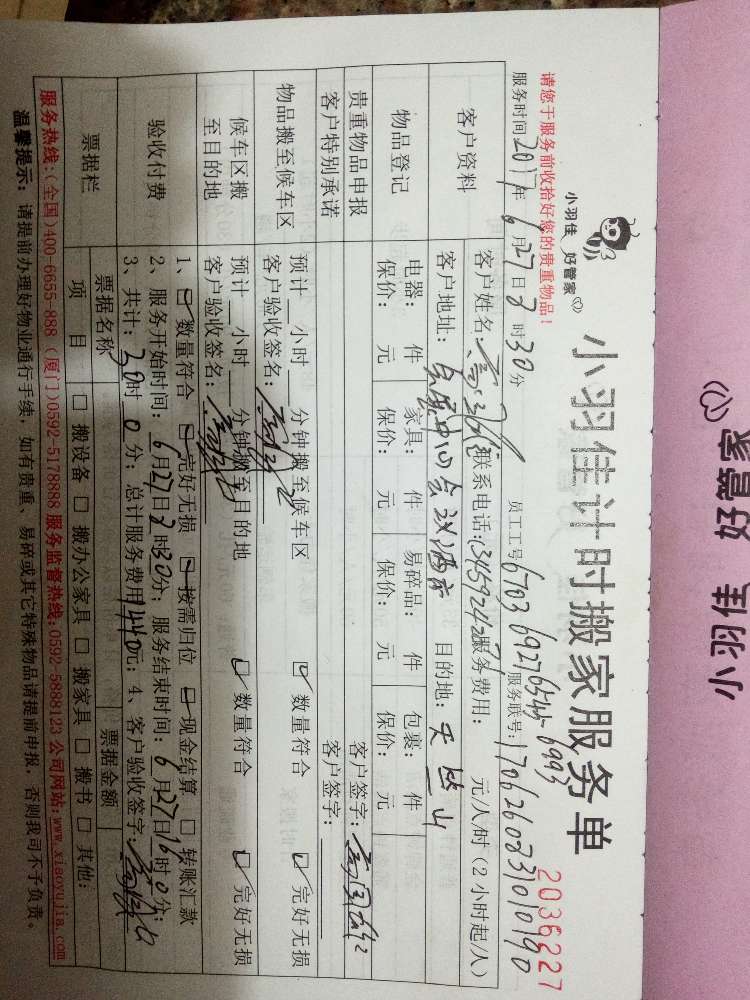 好管家 小羽佳
小羽佳 好管家
小羽佳计时搬家服务单
2036227
请您于服务前收拾好您的贵重物品！
服务时间 2017年 6月27日 8时30分 员工工号 6703 6927 6545 6993 服务联号：170626083101090
客户资料
客户姓名： 联系电话： 服务费用： 元/人/时（2小时起/人）
客户地址： 会议酒店 目的地：天竺山
物品登记
电器： 件 家具： 件 易碎品： 件 包裹： 件
保价： 元 保价： 元 保价： 元 保价： 元
贵重物品申报 客户签字：
客户特别承诺 客户签字：
物品搬至候车区
预计 小时 分钟搬至候车区 数量符合 完好无损
客户验收签名：
候车区搬至目的地
预计 小时 分钟搬至目的地 数量符合 完好无损
客户验收签名：
验收付费
1、 数量符合 完好无损 按需归位 现金结算 转账汇款
2、服务开始时间：6月27日8时30分；服务结束时间：6月27日16时0分；
3、共计：30时0分；总计服务费用1440元；4、客户验收签字：
票据栏
票据名称 票据金额
项目 搬设备 搬办公家具 搬家具 搬书 其他：
服务热线：(全国)400-6655-888 (厦门)0592-5178888 服务监督热线：0592-5888123 公司网站：www.xiaoyujia.com
温馨提示：请提前办理好物业通行手续，如有贵重、易碎或其它特殊物品请提前申报，否则我司不予负责。